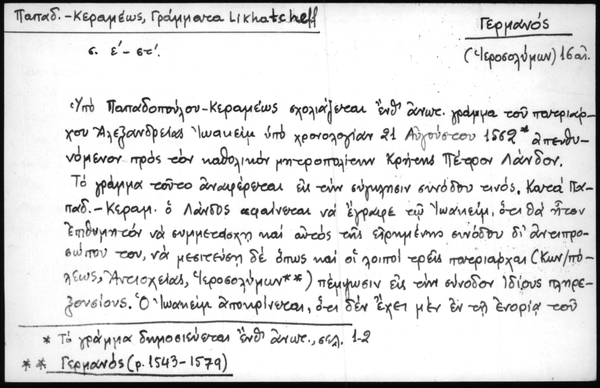 Παπαδ.-Κεραμέως, Γράμματα Likhatcheff
Γερμανός
σ. ε´-στ´.
(Ἱεροσολύμων) 16 αἰ.
Ὑπὸ Παπαδοπούλου-Κεραμέως σχολιάζεται ἔνθ' ἀνωτ. γράμμα τοῦ πατριάρ-
χου Ἀλεξανδρείας Ἰωακεὶμ ὑπὸ χρονολογίαν 21 Αὐγούστου 1562* ἀπευθυ-
νόμενον πρὸς τὸν καθολικὸν μητροπολίτην Κρήτης Πέτρον Λάνδον.
Τὸ γράμμα τοῦτο ἀναφέρεται εἰς τὴν σύγκλησιν συνόδου τινός. Κατὰ Πα-
παδ.-Κεραμ. ὁ Λάνδος φαίνεται νὰ ἔγραψε τῷ Ἰωακείμ, ὅτι θὰ ἦτον
ἐπιθυμητὸν νὰ συμμετάσχῃ καὶ αὐτὸς τῆς εἰρημένης συνόδου δι' ἀντιπρο-
σώπου του, νὰ μεσιτεύσῃ δὲ ὅπως καὶ οἱ λοιποὶ τρεῖς πατριάρχαι (Κων/πό-
λεως, Ἀντιοχείας, Ἱεροσολύμων**) πέμψωσιν εἰς τὴν σύνοδον ἰδίους πληρε-
ξουσίους. Ὁ Ἰωακεὶμ ἀποκρίνεται, ὅτι δὲν ἔχει μὲν ἐν τῇ ἐνορίᾳ του
* Τὸ γράμμα δημοσιεύεται ἔνθ' ἀνωτ., σελ. 1-2
** Γερμανός (p. 1543-1579)